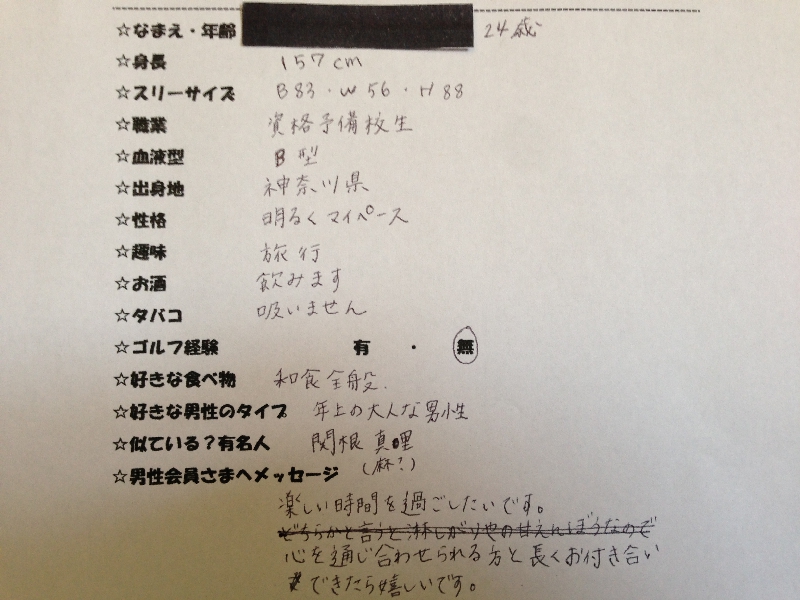 ☆なまえ・年齢 24歳
☆身長 157cm
☆スリーサイズ B83・W56・H88
☆職業 資格予備校生
☆血液型 B型
☆出身地 神奈川県
☆性格 明るくマイペース
☆趣味 旅行
☆お酒 飲みます
☆タバコ 吸いません
☆ゴルフ経験 有 ・ 無
☆好きな食べ物 和食全般.
☆好きな男性のタイプ 年上の大人な男性
☆似ている?有名人 関根 真理
(麻?)
☆男性会員さまへメッセージ
楽しい時間を過ごしたいです。
どちらかと言うと淋しがりやの甘えんぼうなので
心を通じ合わせられる方と長くお付き合い
できたら嬉しいです。